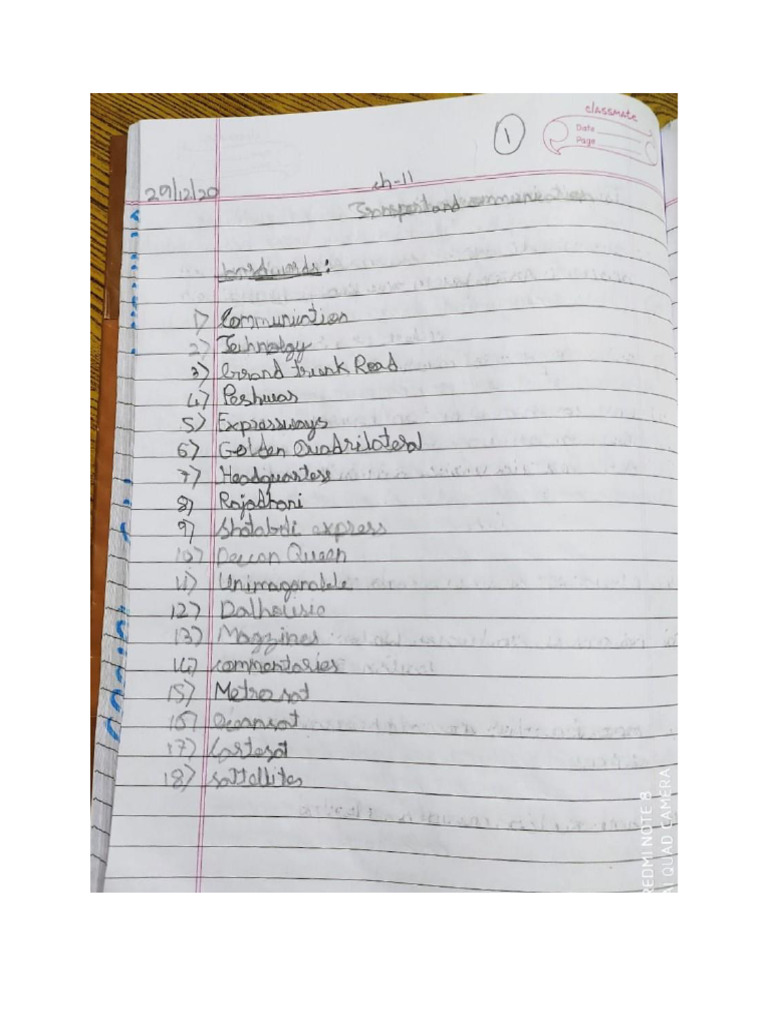 classmate
Date
Page
1
29/12/20
ch-11
Transport and communication
hardwords:
1) Communication
2) Technology
3) Grand trunk Road
4) Peshwar
5) Expressways
6) Golden Quadrilateral
7) Headquarters
8) Rajadhani
9) Shatabdi express
10) Deccan Queen
11) Unimagonable
12) Dalhousie
13) Magzines
14) commentaries
15) Metro sat
16) Oceansat
17) Cartosat
18) sattellites
REDMI NOTE 8
AI QUAD CAMERA